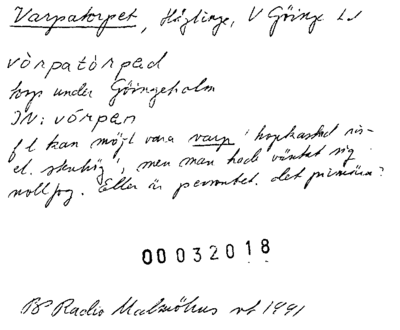 Varpatorpet, Häglinge, V Göinge hd
vò̀rpatòrpəd
torp under Göingeholm
IN: vó̀rpən
fl kan möjl vara varp 'hopkastad ris-
el. stenhög', men man hade väntat sig
nollfog. Eller är personbet. det primära?
00032018
BP Radio Malmöhus vt 1991